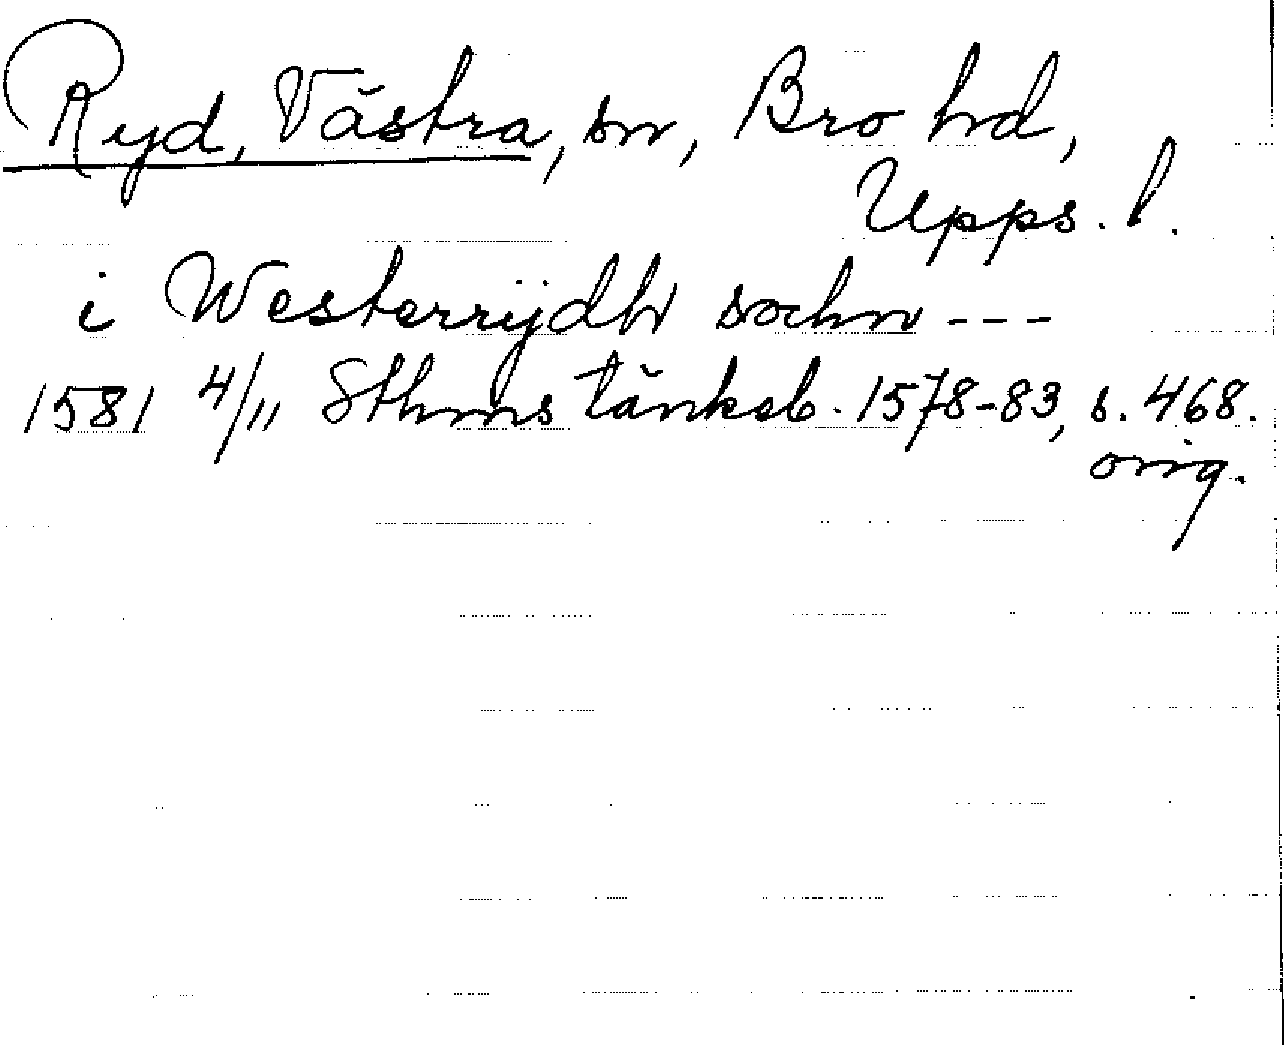 Ryd, Västra, sn, Bro hd,
Upps. l.
i Westerrÿdh sochn ---
1581 4/11 Sthms tänkeb. 1578-83, s. 468.
orig.